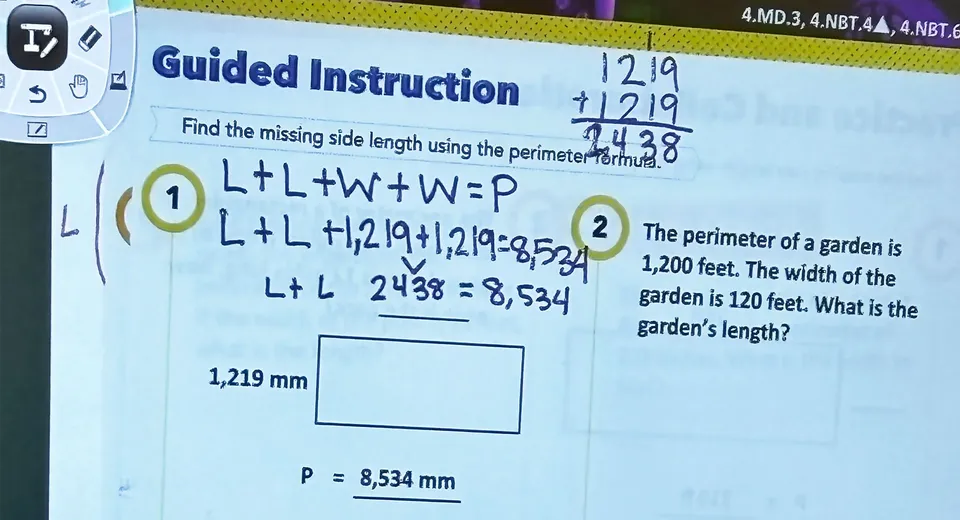 4.MD.3, 4.NBT.4▲, 4.NBT.6
Guided Instruction
1219
+1219
2438
Find the missing side length using the perimeter formula.
L
1
L+L+W+W=P
L+L+1,219+1,219=8,534
L+ L 2438 = 8,534
1,219 mm
P = 8,534 mm
2
The perimeter of a garden is
1,200 feet. The width of the
garden is 120 feet. What is the
garden's length?